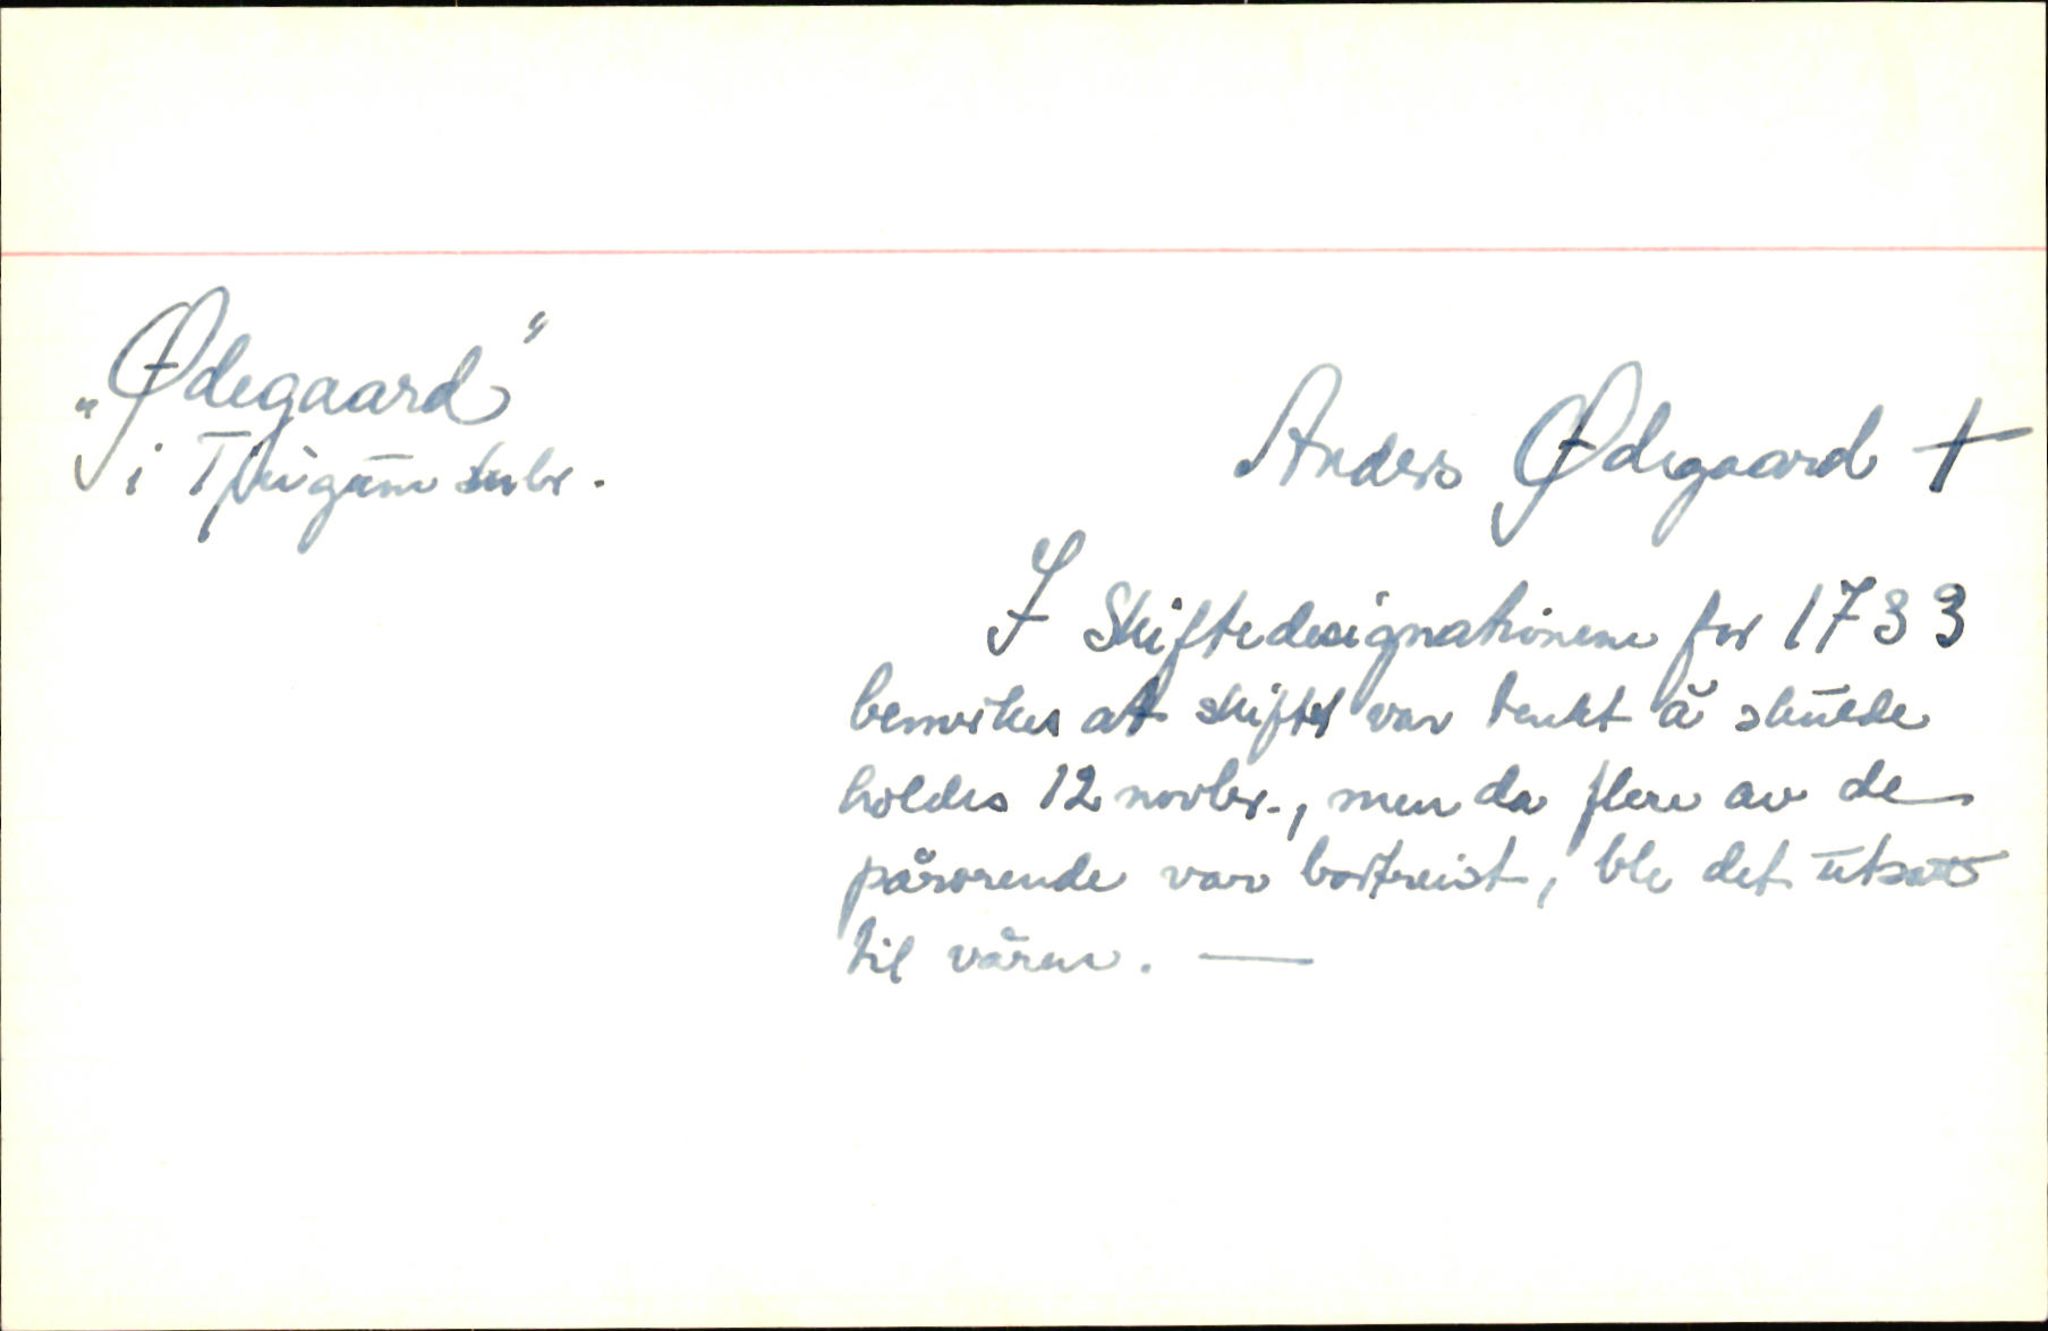 „Ødegaard"
i
Anders Ødegaard †
I Skiftedesignationene for 1733
bemerkes at skiftet var tenkt å skulde
holdes 12 novbr., men da flere av de
pårørende var bortreist, ble det utsatt
til våren. —